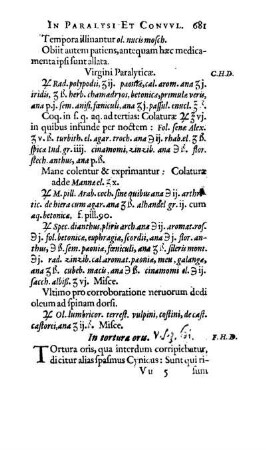 IN PARALYSI ET CONVVL. 681
Tempora illinantur ol. nucis mosch.
Obiit autem patiens, antequam hæc medica-
menta ipsi sunt allata.
Virgini Paralyticæ. C.H.D.
℞ Rad. polypodij, ʒ ij. pæoniæ, cal. arom. ana ʒ j.
iridis, ʒ ß. herb. chamædryos, betonicæ, primulæ veris,
ana p. j. sem. anisi, fœniculi, ana ʒ j. passul. enucl. ℥ ß.
Coq. in s. q. aq. ad tertias: Colaturæ ℥ vj.
in quibus infunde per noctem: Fol. senæ Alex.
ʒ v. ß. turbith. el. agar. troch. ana ℈ iij. rhab. el. ʒ ß.
spicæ Ind. gr. iij. cinamomi, zinzib. ana ℈ ß. flor.
stech. anthus, ana p. ß.
Mane colentur & exprimantur: Colaturæ
adde Mannæ el. ℥ x.
℞ M. pill. Arab. coch. sine quibus ana ℈ ij. arthr
tic. de hiera cum agar. ana ʒ ß. alhandel gr. ij. cum
aq. betonica, f. pill. 90.
℞ Spec. dianthus, pliris arch. ana ℈ ij. aromat. ros.
℈ j. fol. betonicæ, euphragiæ, scordii, ana ℈ j. flor. an-
thus, ℈ ß. sem. pæoniæ, fœniculi, ana ʒ ß. sileris mont.
℈ j. rad. zinzib. cal. aromat. pæoniæ, meu, galangæ,
ana ʒ ß. cubeb. macis, ana ℈ ß. cinamomi el. ℈ ij.
sacch. albiss. ℥ vj. Misce.
Vltimo pro corroboratione neruorum dedi
oleum ad spinam dorsi.
℞ Ol. lumbricor. terrest. vulpini, costini, de cast.
castorei, ana ʒ ij. Misce.
In tortura oris. F.H.D.
TOrtura oris, qua interdum corripiebatur,
dicitur alias spasmus Cynicus: Sunt qui ri-
Vu 5 sum